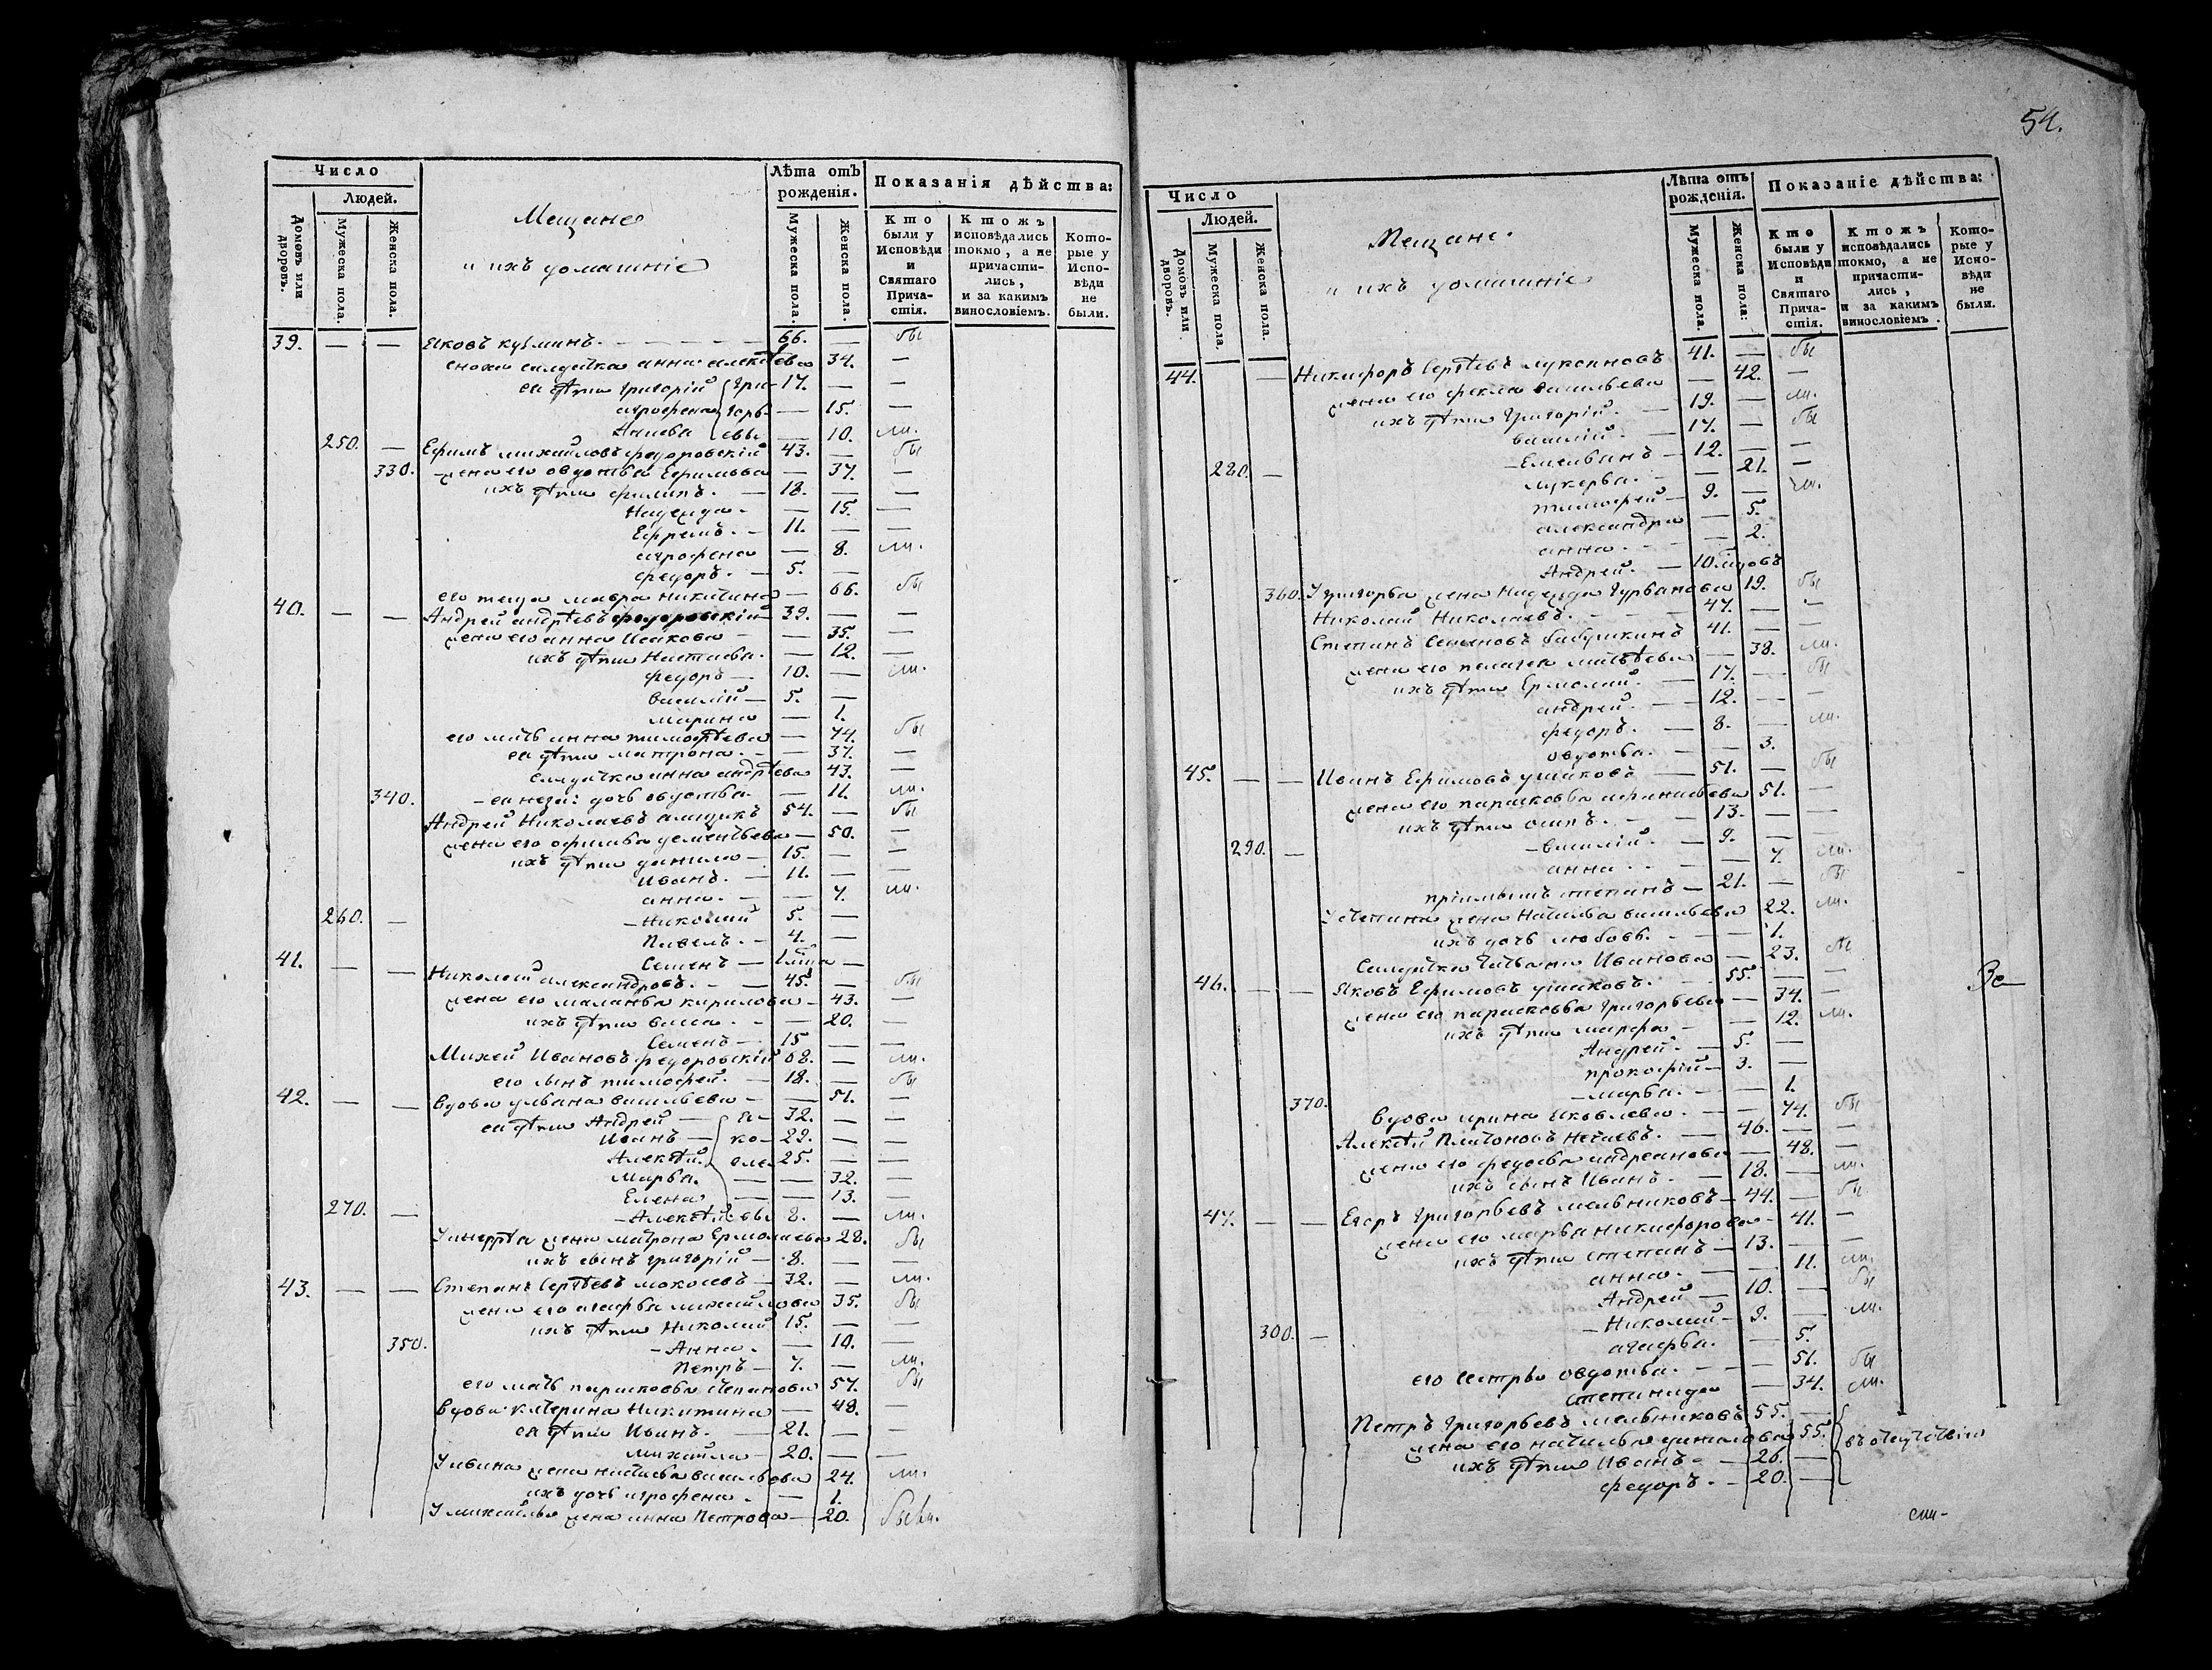 54.
Число
Людей.
Домовъ или дворовъ.
Мужеска пола.
Женска пола.
Мещане
и ихъ домашніе
Лѣта отъ рожденія.
Мужеска пола.
Женска пола.
Показанія дѣйства:
Кто были у Исповѣди и Святаго Причастія.
Ктожъ исповѣдались токмо, а не причастились, и за какимъ винословіемъ.
Которые у Исповѣди не были.
39. — — Яковъ Кузминъ. — 66. — бы
сноха салдатка анна алексѣева 34. —
ея дѣти Григорій Гри- 17. — —
агрофена горь- — 15. —
евы — 10. мл.
250. — Ефимъ михайловъ федоровскій 43. — бы
330. жена его овдотья Ефимова — 37. —
ихъ дѣти филипъ. — 18. — —
Надежда. — 15. —
Ефремъ. — 11. — —
агрофена — 8. мл.
федоръ. — 5. —
его теща мавра никитина — 66. бы
40. — — Андрей андрѣевъ федоровскій 39. — —
жена его анна Исакова — 35. —
ихъ дѣти Настасья. — 12. —
федоръ — 10. — мл.
василій — 5. —
марина — 1.
его мать анна тимофѣева — 74. бы
ея дѣти матрона. — 37. —
салдатка анна андрѣева 43. —
340. — ея неза: дочь овдотья. — 11. мл.
Андрей Николаевъ 54. — бы
жена его офимья дементьева — 50. —
ихъ дѣти данило — 15. — —
Иванъ. — 11. — —
анна. — 7. мл.
260. — Николай 5. —
Павелъ. — 4. —
Семенъ —
41. — — Николай александровъ. — 45. — бы
жена его маланья кирилова — 43. —
ихъ дѣти васса. — 20. —
Семенъ — 15 — —
Михей Ивановъ федоровскій 68. — мл.
его сынъ тимофей. — 18. — бы
42. — — вдова ульяна васильева — 51. —
ея дѣти Андрей — Яко- 32. — —
Иванъ — 29. — —
Алексѣй. вле- 25. — —
Марья. — — 32. —
Елена. — — 13. —
270. — Алексѣй. евы 8. — мл.
У андрѣя жена матрона Ермолаева 28. бы
ихъ сынъ григорій — 8. — —
43. — — Степанъ Сергѣевъ — 32. — мл.
жена его агафья михайлова 35. бы
ихъ дѣти Николай 15. — —
350. — Анна. — 10. —
Петръ — 7. — мл.
его мать парасковья степанова 57. бы
вдова катерина Никитина — 48. —
ея дѣти Иванъ. — 21. — —
михайла — 20. — —
У ивана жена настасья васильева 24. мл.
ихъ дочь агрофена. — 1.
У михайлы жена анна Петрова — 20.
Число
Людей.
Домовъ или дворовъ.
Мужеска пола.
Женска пола.
Мещане.
и ихъ домашніе
Лѣта отъ рожденія.
Мужеска пола.
Женска пола:
Показаніе дѣйства:
Кто были у Исповѣди и Святаго Причастія.
Ктожъ исповѣдались токмо, а не причастились, и за какимъ винословіемъ.
Которые у Исповѣди не были.
44. — Никифоръ Сергѣевъ 41. — бы
жена его фекла васильева — 42. —
ихъ дѣти Григорій. — 19. — мл.
василій. — 17. — бы
— Емельянъ — 12. — —
280. — лукерья. — 21. —
тимофей — 9. — мл.
александра — 5.
анна. — 2.
Андрей. — 10.
360. У григорья жена Надежда Гурьянова 19. бы
Николай Николаевъ. — 47. — —
Степанъ Семеновъ бабушкинъ 41. — —
жена его пелагея матвѣева — 38. мл.
ихъ дѣти Ермолай. — 17. — бы
андрей. — 12. — —
федоръ. — 8. — мл.
овдотья. — — 3.
45. — — Иванъ Ефимовъ ушаковъ — 51. — бы
жена его парасковья афанасьева 51. —
ихъ дѣти осипъ. — 13. — —
290. — василій. — 9. — —
анна. — 7. мл.
пріимышъ степанъ — 21. — бы
У степана жена Наталья васильева 22. мл.
ихъ дочь любовь. — 1.
Салдатка татьяна Иванова — 23. бы
46. — — Яковъ Ефимовъ ушаковъ. — 55. — —
жена его парасковья григорьева — 34. —
ихъ дѣти марфа — 12. мл.
Андрей. — 5. —
прокофій — 3. —
370. — марья. — 1.
вдова ирина яковлева. — 74. бы
Алексѣй Платоновъ Нечаевъ. — 46. — —
жена его федосья андреанова — 48. —
ихъ сынъ Иванъ. — 18. — мл.
47. — — Егоръ Григорьевъ мельниковъ — 44. — бы
жена его марья никифорова — 41. —
ихъ дѣти степанъ — 13. — —
анна. — 11. мл.
Андрей — 10. — бы
300. — Николай — 9. — мл.
агафья. — 5.
его сестры овдотья. — 51. бы
степанида — 34. мл.
Петръ Григорьевъ мельниковъ 55. —
жена его наталья данилова 55. въ отсутствіи
ихъ дѣти Иванъ — 26. —
федоръ. — 20. —
Ве—